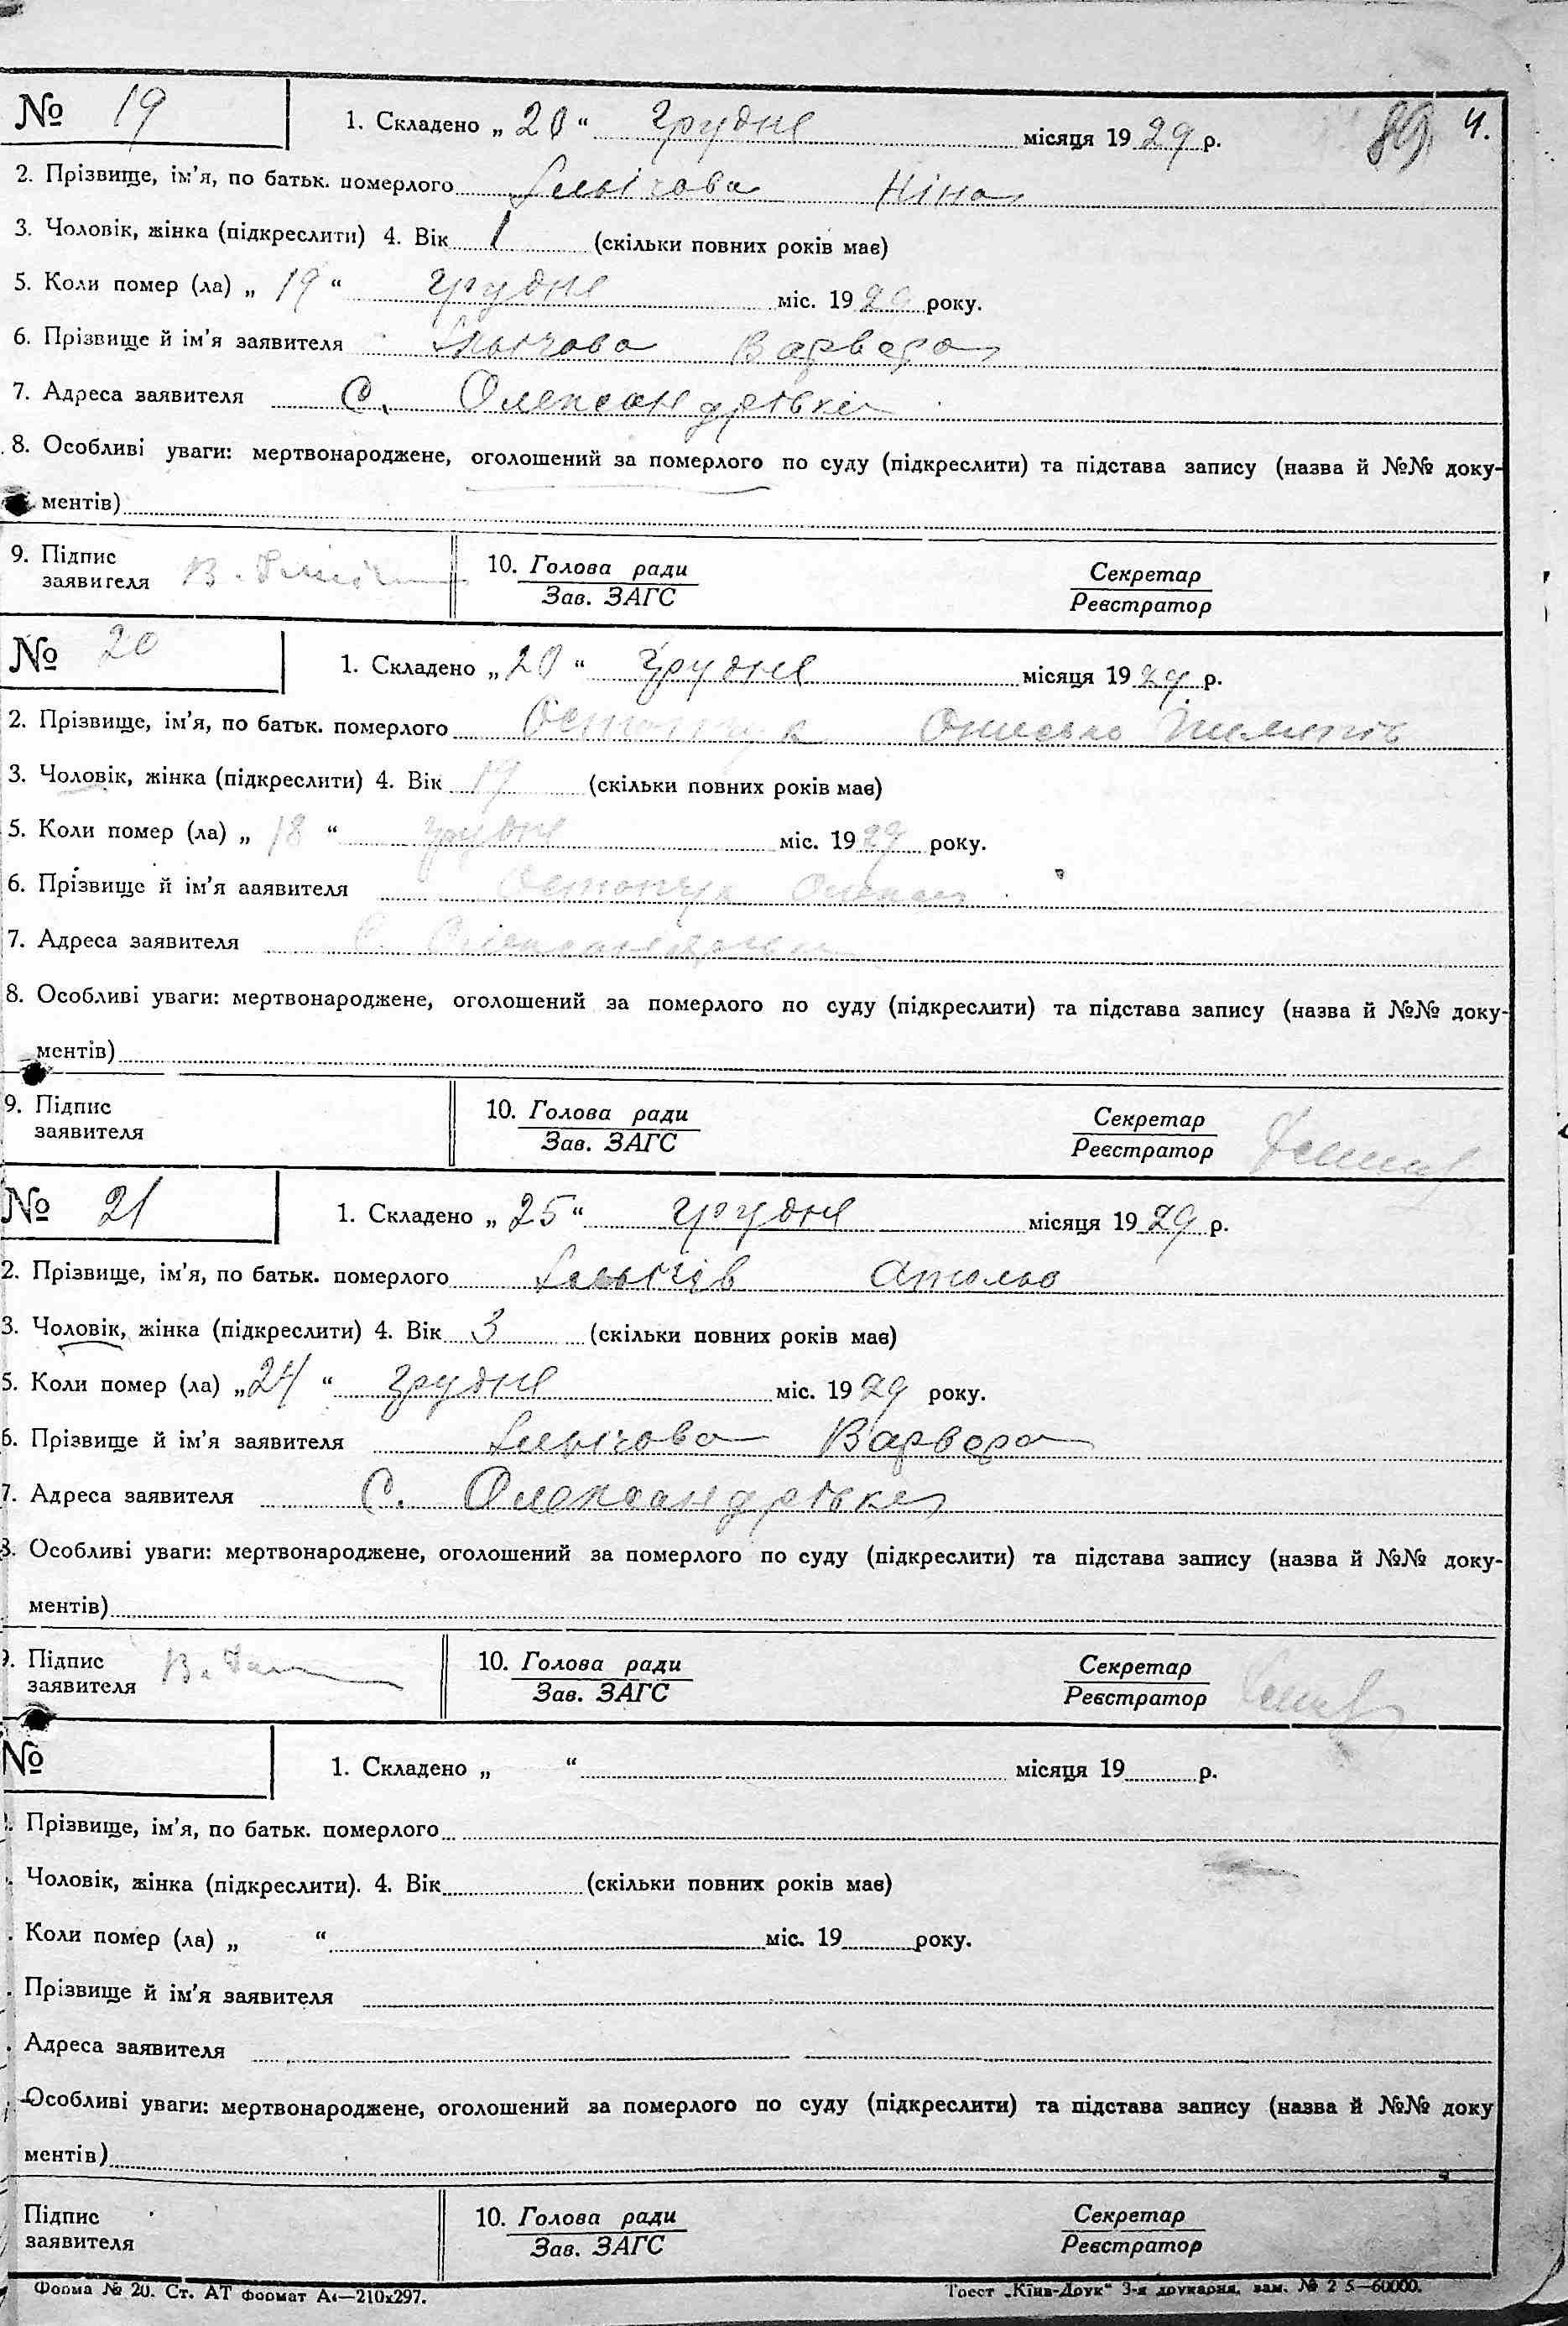 № 19 1. Складено „ 20 “ грудня місяця 19 29 р. 89 4.
2. Прізвище, ім'я, по батьк. померлого Ніна
3. Чоловік, жінка (підкреслити) 4. Вік 1 (скільки повних років має)
5. Коли помер (ла) „ 19 “ грудня міс. 19 29 року.
6. Прізвище й ім'я заявителя Варвара
7. Адреса заявителя С. Олександрівка
8. Особливі уваги: мертвонароджене, оголошений за померлого по суду (підкреслити) та підстава запису (назва й №№ доку-
ментів)
9. Підпис заявителя В. 10. Голова ради Секретар
Зав. ЗАГС Реєстратор
№ 20 1. Складено „ 20 “ грудня місяця 19 29 р.
2. Прізвище, ім'я, по батьк. померлого Остапчук Онисько
3. Чоловік, жінка (підкреслити) 4. Вік 19 (скільки повних років має)
5. Коли помер (ла) „ 18 “ грудня міс. 19 29 року.
6. Прізвище й ім'я заявителя Остапчук
7. Адреса заявителя С. Олександрівка
8. Особливі уваги: мертвонароджене, оголошений за померлого по суду (підкреслити) та підстава запису (назва й №№ доку-
ментів)
9. Підпис заявителя 10. Голова ради Секретар
Зав. ЗАГС Реєстратор
№ 21 1. Складено „ 25 “ грудня місяця 19 29 р.
2. Прізвище, ім'я, по батьк. померлого
3. Чоловік, жінка (підкреслити) 4. Вік 3 (скільки повних років має)
5. Коли помер (ла) „ 24 “ грудня міс. 19 29 року.
6. Прізвище й ім'я заявителя Варвара
7. Адреса заявителя С. Олександрівка
8. Особливі уваги: мертвонароджене, оголошений за померлого по суду (підкреслити) та підстава запису (назва й №№ доку-
ментів)
9. Підпис заявителя В. 10. Голова ради Секретар
Зав. ЗАГС Реєстратор
№ 1. Складено „ “ місяця 19 р.
Прізвище, ім'я, по батьк. померлого
Чоловік, жінка (підкреслити). 4. Вік (скільки повних років має)
Коли помер (ла) „ “ міс. 19 року.
Прізвище й ім'я заявителя
Адреса заявителя
Особливі уваги: мертвонароджене, оголошений за померлого по суду (підкреслити) та підстава запису (назва й №№ доку
ментів)
Підпис заявителя 10. Голова ради Секретар
Зав. ЗАГС Реєстратор
Форма № 20. Ст. АТ формат А4—210х297. Трест „Київ-Друк“ 3-я друкарня, зам. № 2 5—60000.